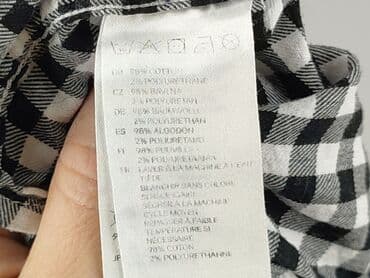 98% COTTON
2% POLYURETHANE
CZ 98% BAVLNA
2% POLYURETAN
DE 98% BAUMWOLLE
2% POLYURETHAN
ES 98% ALGODÓN
2% POLIURETANO
FI 98% PUUVILLA
2% POLYURETAANIA
FR LAVER À LA MACHINE À L'EAU
TIÈDE
BLANCHIR SANS CHLORE
SI NÉCESSAIRE
SÉCHER À LA MACHINE
CYCLE MOYEN
REPASSER À FAIBLE
TEMPÉRATURE SI
NÉCESSAIRE
98% COTON
2% POLYURÉTHANNE